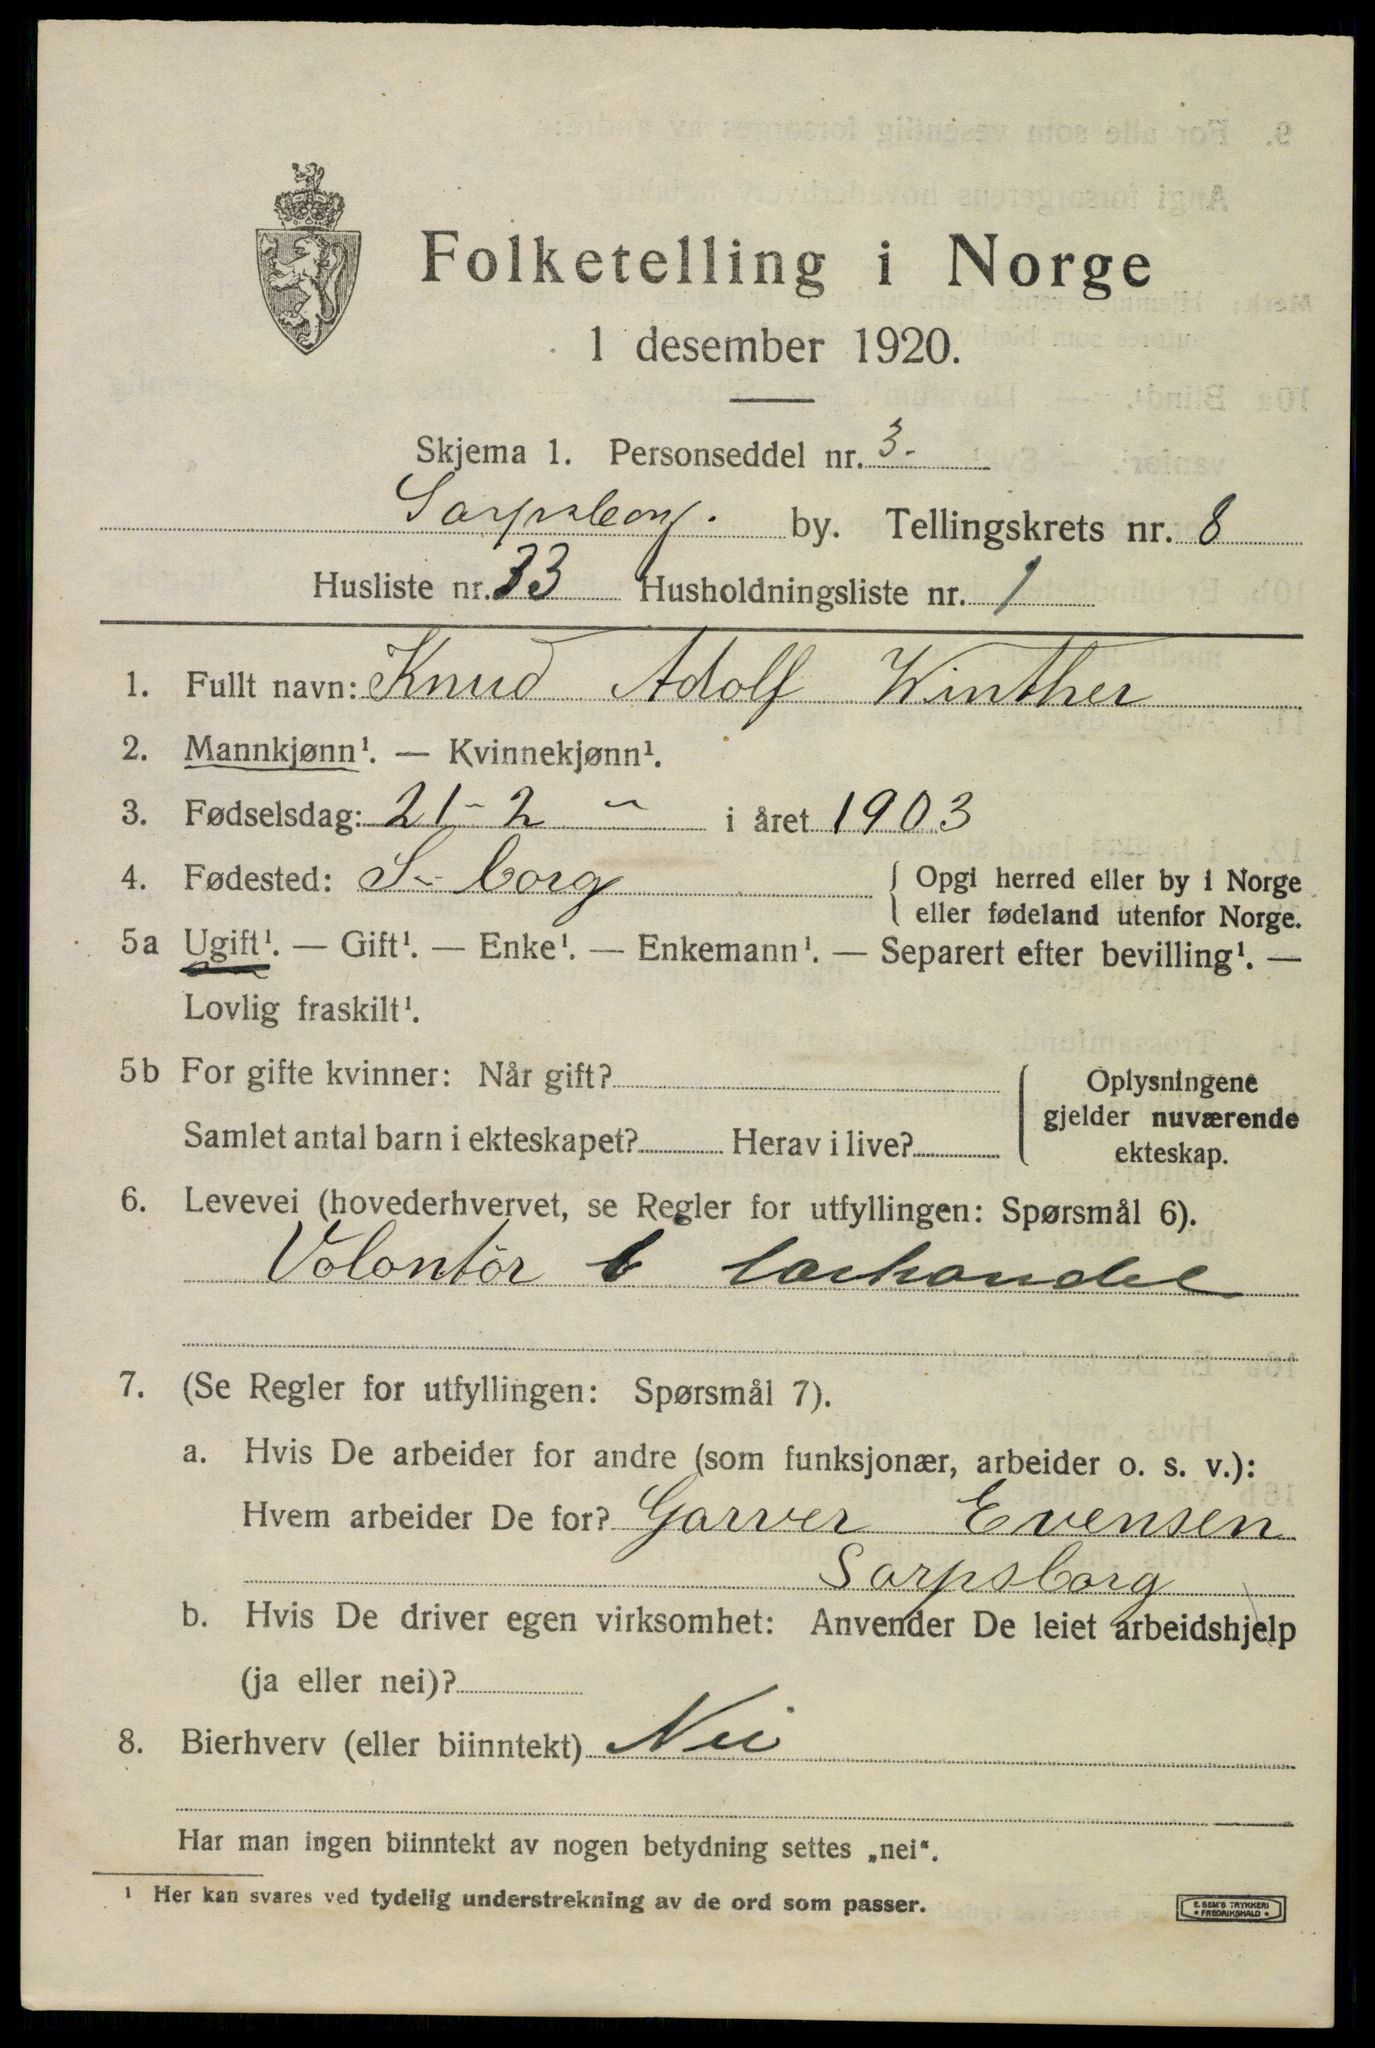 Folketelling i Norge
1 desember 1920.
Skjema 1. Personseddel nr. 3.
Sarpsborg. by. Tellingskrets nr. 8
Husliste nr. 33 Husholdningsliste nr. 1
1. Fullt navn: Knud Adolf Winther
2. Mannkjønn¹. — Kvinnekjønn¹.
3. Fødselsdag: 21-2 - i året 1903
4. Fødested: S-borg { Opgi herred eller by i Norge
eller fødeland utenfor Norge.
5a Ugift¹. — Gift¹. — Enke¹. — Enkemann¹. — Separert efter bevilling¹. —
Lovlig fraskilt¹.
5b For gifte kvinner: Når gift?
Samlet antal barn i ekteskapet? Herav i live?
{ Oplysningene
gjelder nuværende
ekteskap.
6. Levevei (hovederhvervet, se Regler for utfyllingen: Spørsmål 6).
Volontör lærhandel
7. (Se Regler for utfyllingen: Spørsmål 7).
a. Hvis De arbeider for andre (som funksjonær, arbeider o. s. v.):
Hvem arbeider De for? Garver Evensen
Sarpsborg
b. Hvis De driver egen virksomhet: Anvender De leiet arbeidshjelp
(ja eller nei)?
8. Bierhverv (eller biinntekt) Nei
Har man ingen biinntekt av nogen betydning settes „nei“.
¹ Her kan svares ved tydelig understrekning av de ord som passer.
E. SEM'S TRYKKERI
* FREDRIKSHALD *